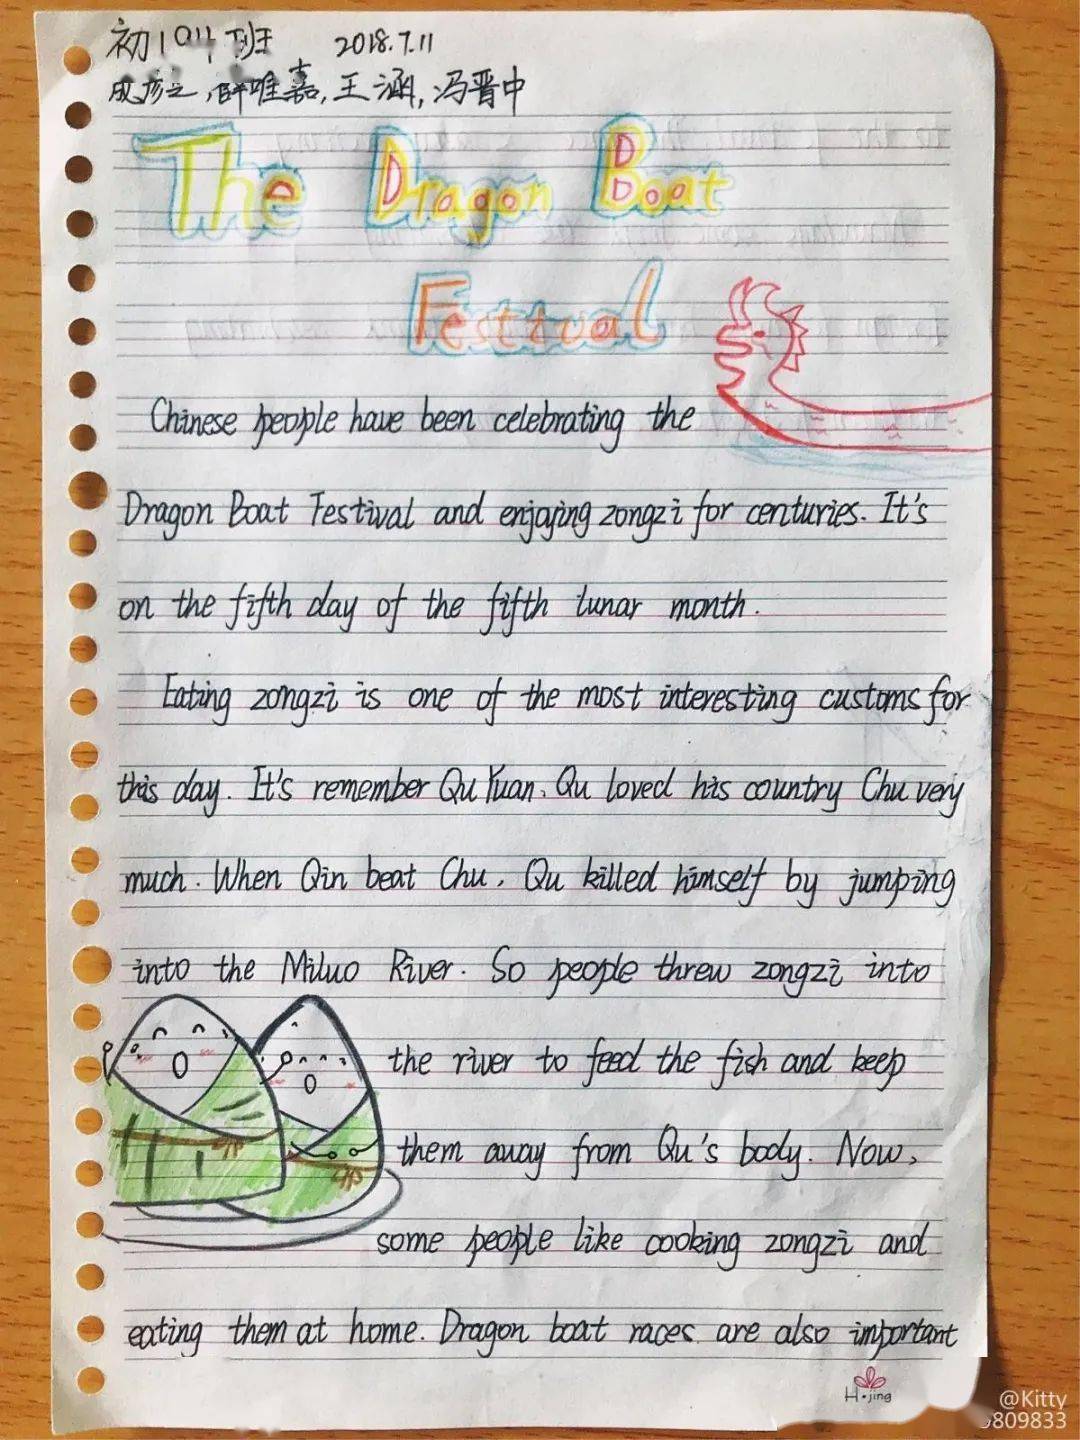 初194班 2018.7.11
成彦之,薛唯嘉,王涵,冯晋中
The Dragon Boat
Festival
Chinese people have been celebrating the
Dragon Boat Festival and enjoying zongzi for centuries. It's
on the fifth day of the fifth lunar month.
Eating zongzi is one of the most interesting customs for
this day. It's remember Qu Yuan. Qu loved his country Chu very
much. When Qin beat Chu, Qu killed himself by jumping
into the Miluo River. So people threw zongzi into
the river to feed the fish and keep
them away from Qu's body. Now,
some people like cooking zongzi and
eating them at home. Dragon boat races are also important
H.jing
@Kitty
9809833